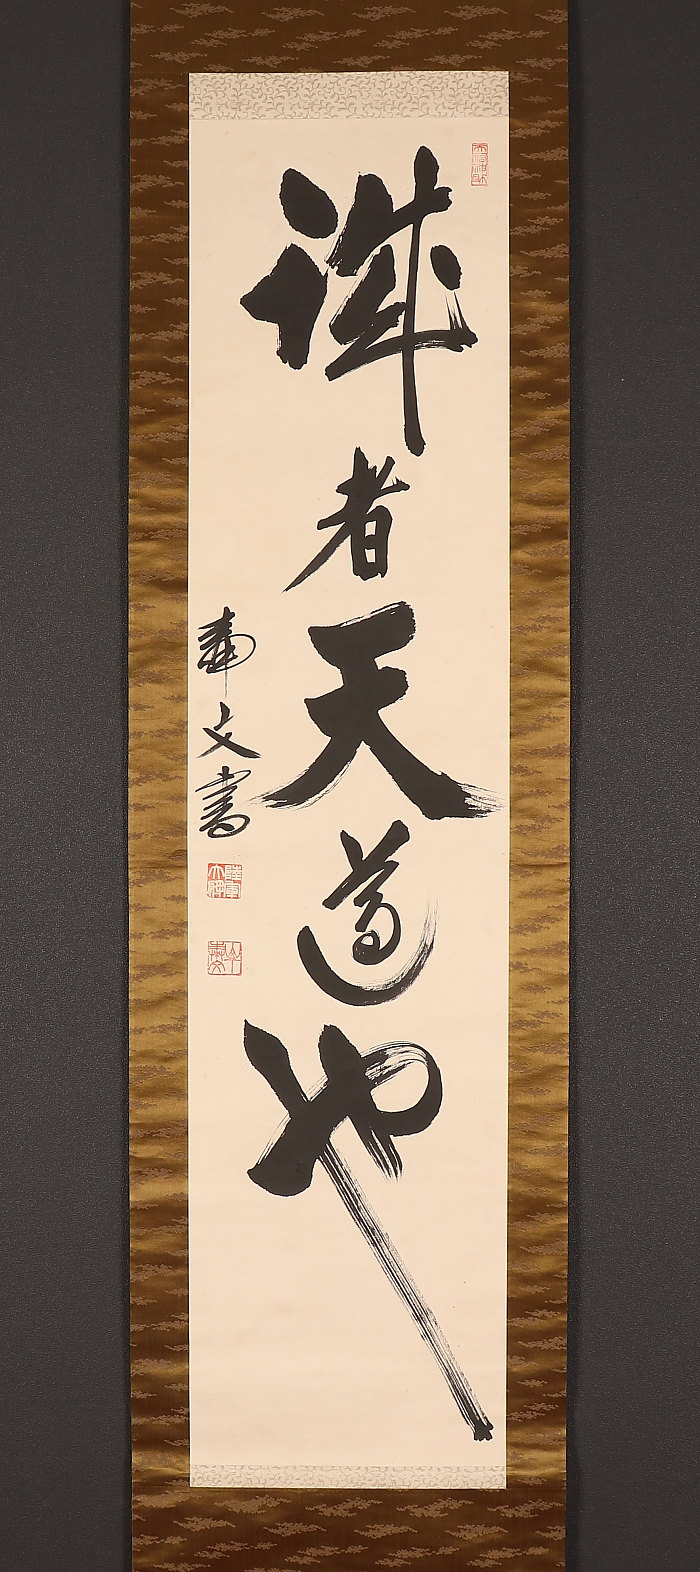 誠者天道也
奉文書